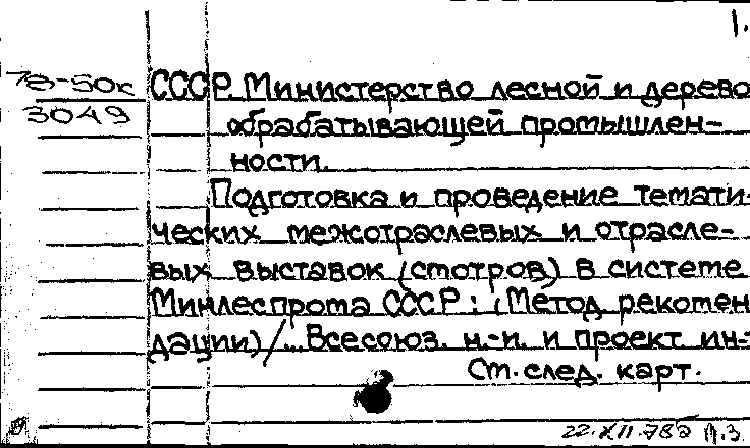 1.
78-50к СССР. Министерство лесной и дерево
3049 обрабатывающей промышлен-
ности.
Подготовка и проведение темати-
ческих межотраслевых и отрасле-
вых выставок (смотров) в системе
Минлеспрома СССР: (Метод. рекомен
дации) /... Всесоюз. н.-и. и проект. ин-
См. след. карт.
22.XII.78